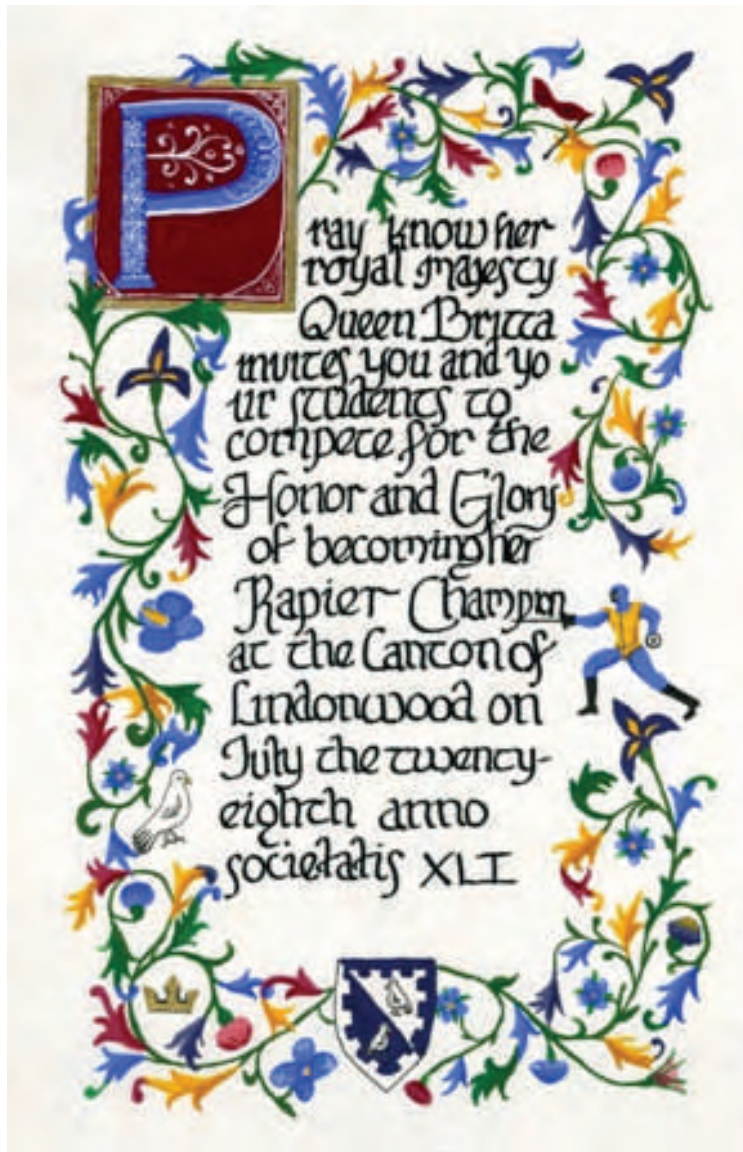 Pray know her
royal majesty
Queen Britta
invites you and yo
ur students to
compete for the
Honor and Glory
of becoming her
Rapier Champion
at the Canton of
Lindonwood on
July the twenty-
eighth anno
societatis XLI